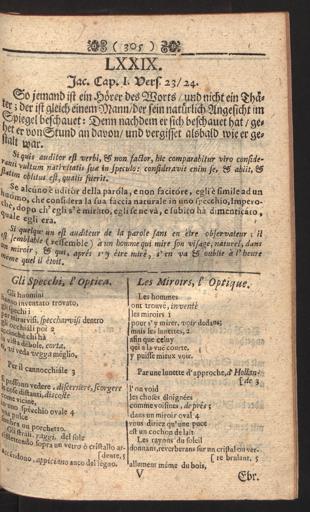 ( 305 )
LXXIX.
Jac. Cap. I. Vers. 23/24.
So jemand ist ein Hörer des Worts / und nicht ein Thä-
ter ; der ist gleich einem Mann/der sein natürlich Angesicht im
Spiegel beschauet : Denn nachdem er sich beschauet hat / ge-
het er von Stund an davon/ und vergisset alsbald wie er ge-
stalt war.
Si quis auditor est verbi, & non factor, hic comparabitur viro conside-
ranti vultum nativitatis suæ in speculo: consideravit enim se, & abiit, &
statim oblitus est, qualis fuerit.
Se alcuno è uditor della parola, e non facitore, egli è simile ad un
huomo, che considera la sua faccia naturale in uno specchio, Impero-
chè, dopo ch' egli s'è mirato, egli se ne và, e subito hà dimenticato,
quale egli era.
Si quelque un est auditeur de la parole sans en être observateur : il
est semblable (ressemble) à un homme qui mire son visage, naturel, dans
un miroir, & qui, après s'y être miré, s'en va & oublie à l'heure
même quel il étoit.
Gli Specchi, l'Optica.
Gli huomini
hanno inventato trovato,
gli specchi 1
per mirarvisi, specchiarvisi dentro
gli occhiali poi 2
perchè chi hà
la vista debole, corta,
vi veda vegga meglio,
Per il cannocchiale 3
si possono vedere, discernere, scorgere
le cose distanti, discoste
come vicine,
in uno specchio ovale 4
una pulce
sembra un porchetto.
Gli strali, raggi, del sole
sopra un vetro ò cristallo ar-
[dente, 5
accendono, appicciano anco dal legno.
Les Miroirs, l'Optique.
Les hommes
ont trouvé, inventé
les miroirs 1
pour s'y mirer, voir dedans;
mais les lunettes, 2
afin que celuy
qui a la vue courte,
y puisse mieux voir.
Par une lunette d'approche, d'Hollan-
[de 3
l'on void
les choses éloignées
comme voisines, de prés ;
dans un miroir oval 4
vous diriez qu'une puce
est un cochon de lait
Les rayons du soleil
donnant, reverberans sur un cristal ou ver-
[re brulant, 5
allument même du bois,
V
Ebr.